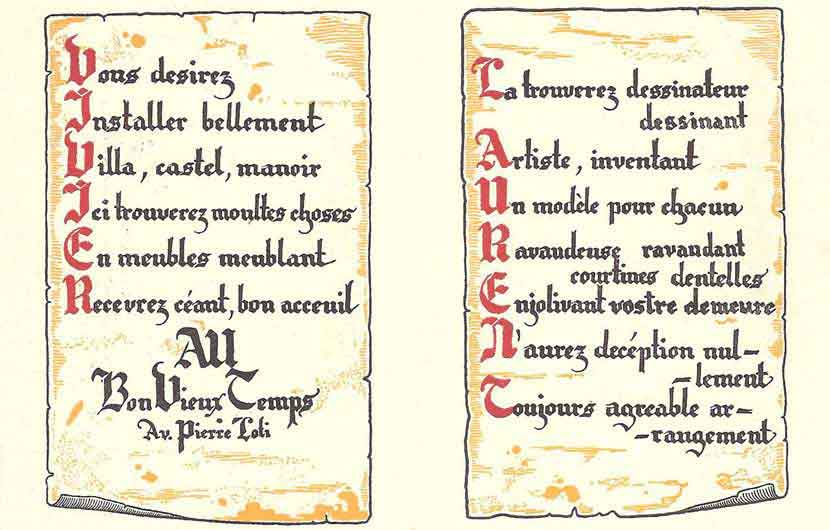 Vous desirez
Installer bellement
Villa, castel, manoir
Ici trouverez moultes choses
En meubles meublant
Recevrez céant, bon acceuil
AU
Bon Vieux Temps
Av. Pierre Loti
La trouverez dessinateur
dessinant
Artiste, inventant
Un modèle pour chacun
Ravaudeuse ravandant
courtines dentelles
Enjolivant vostre demeure
N'aurez decéption nul-
-lement
Toujours agreable ar-
-rangement